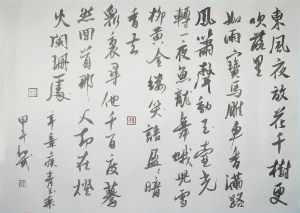 東風夜放花千樹更
吹落星
如雨寶馬雕車香滿路
鳳簫聲動玉壺光
轉一夜魚龍舞蛾兒雪
柳黃金縷笑語盈盈暗
香去
衆裏尋他千百度驀
然回首那人却在燈
火闌珊處
辛棄疾青玉案
甲午